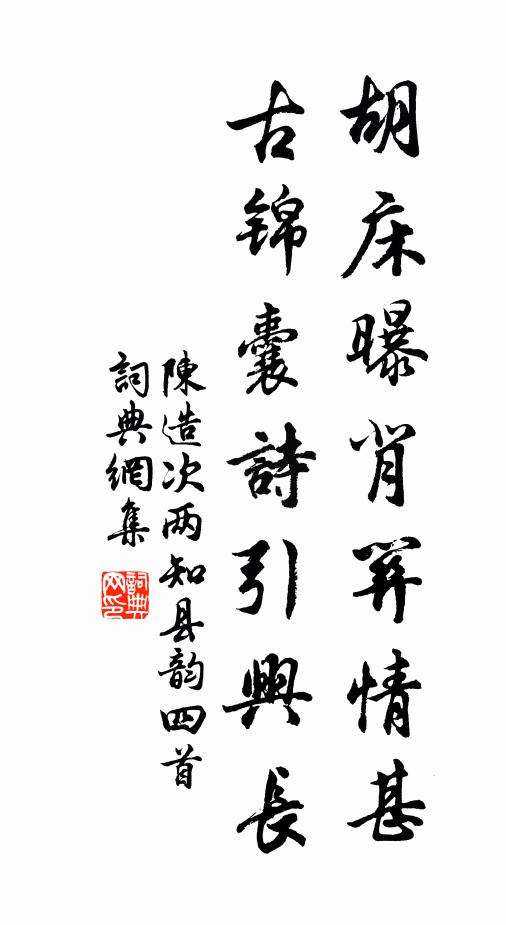 胡床曝背關情甚
古錦囊詩引興長
陳造次两知县韵四首
詞典網集
詞典网印